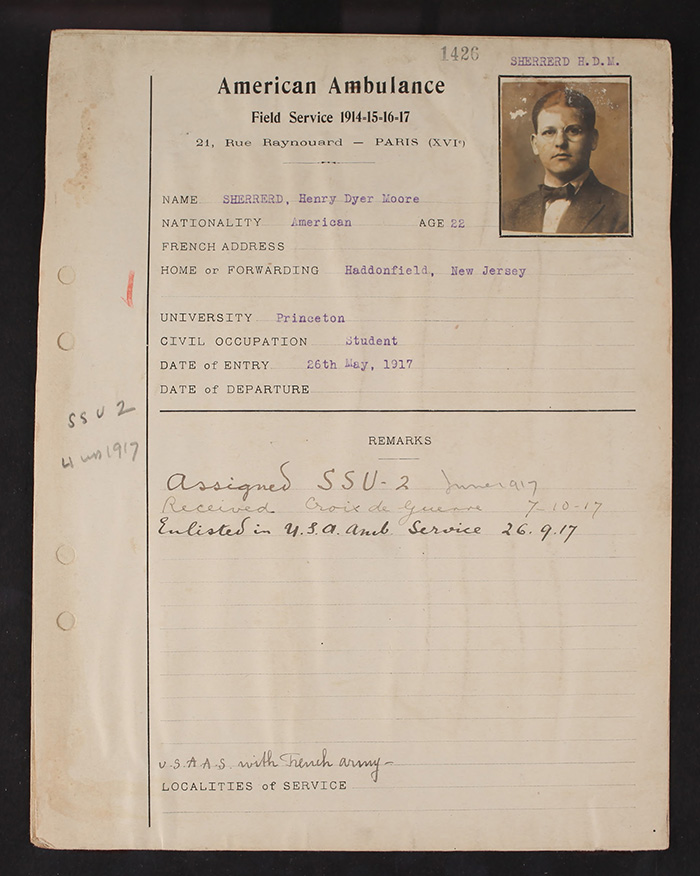 1426
SHERRERD H.D.M.
American Ambulance
Field Service 1914-15-16-17
21, Rue Raynouard — PARIS (XVIe)
NAME SHERRERD, Henry Dyer Moore
NATIONALITY American AGE 22
FRENCH ADDRESS
HOME or FORWARDING Haddonfield, New Jersey
UNIVERSITY Princeton
CIVIL OCCUPATION Student
DATE of ENTRY 26th May, 1917
DATE of DEPARTURE
SSU 2
4 1917
REMARKS
Assigned SSU-2 June 1917
Received Croix de Guerre 7-10-17
Enlisted in U.S.A. Amb. Service 26.9.17
U.S.A.A.S. with French army —
LOCALITIES of SERVICE